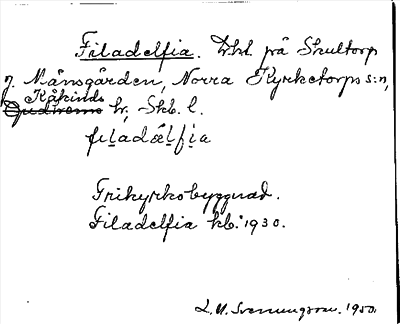 Filadelfia. Lhl. på Skultorp
n. Månsgården, Norra Kyrketorps s:n,
Kåkinds
Gudhems hr, Skb. l.
filadælfia
Frikyrkobyggnad.
Filadelfia kb. 1930.
L. M. Svenungsson. 1950.